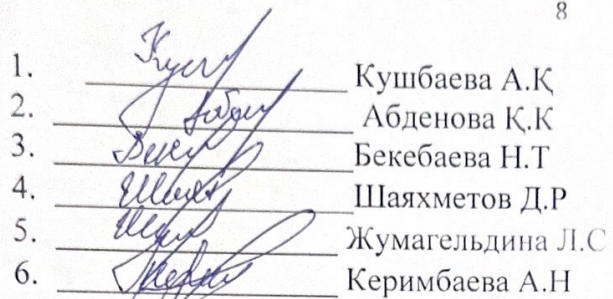 8
1. Кушбаева А.Қ
2. Абденова Қ.К
3. Бекебаева Н.Т
4. Шаяхметов Д.Р
5. Жумагельдина Л.С
6. Керимбаева А.Н